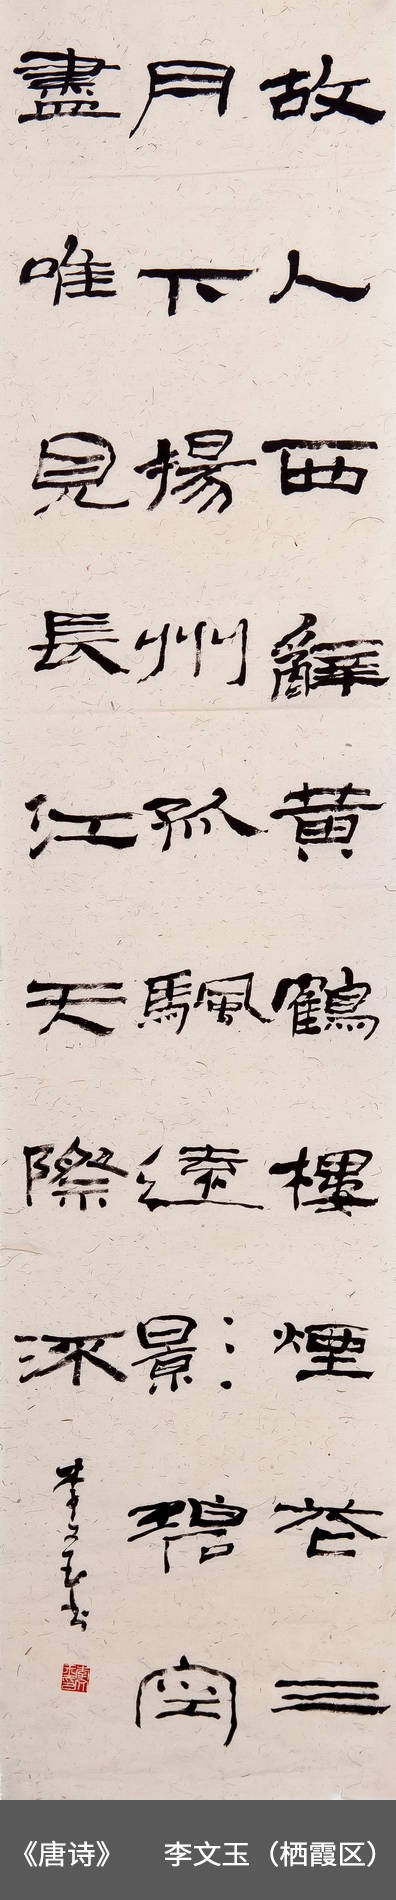 故人西辭黄鶴樓煙花三
月下揚州孤颿遠影碧空
盡唯見長江天際㳅
李文玉书
《唐诗》 李文玉（栖霞区）